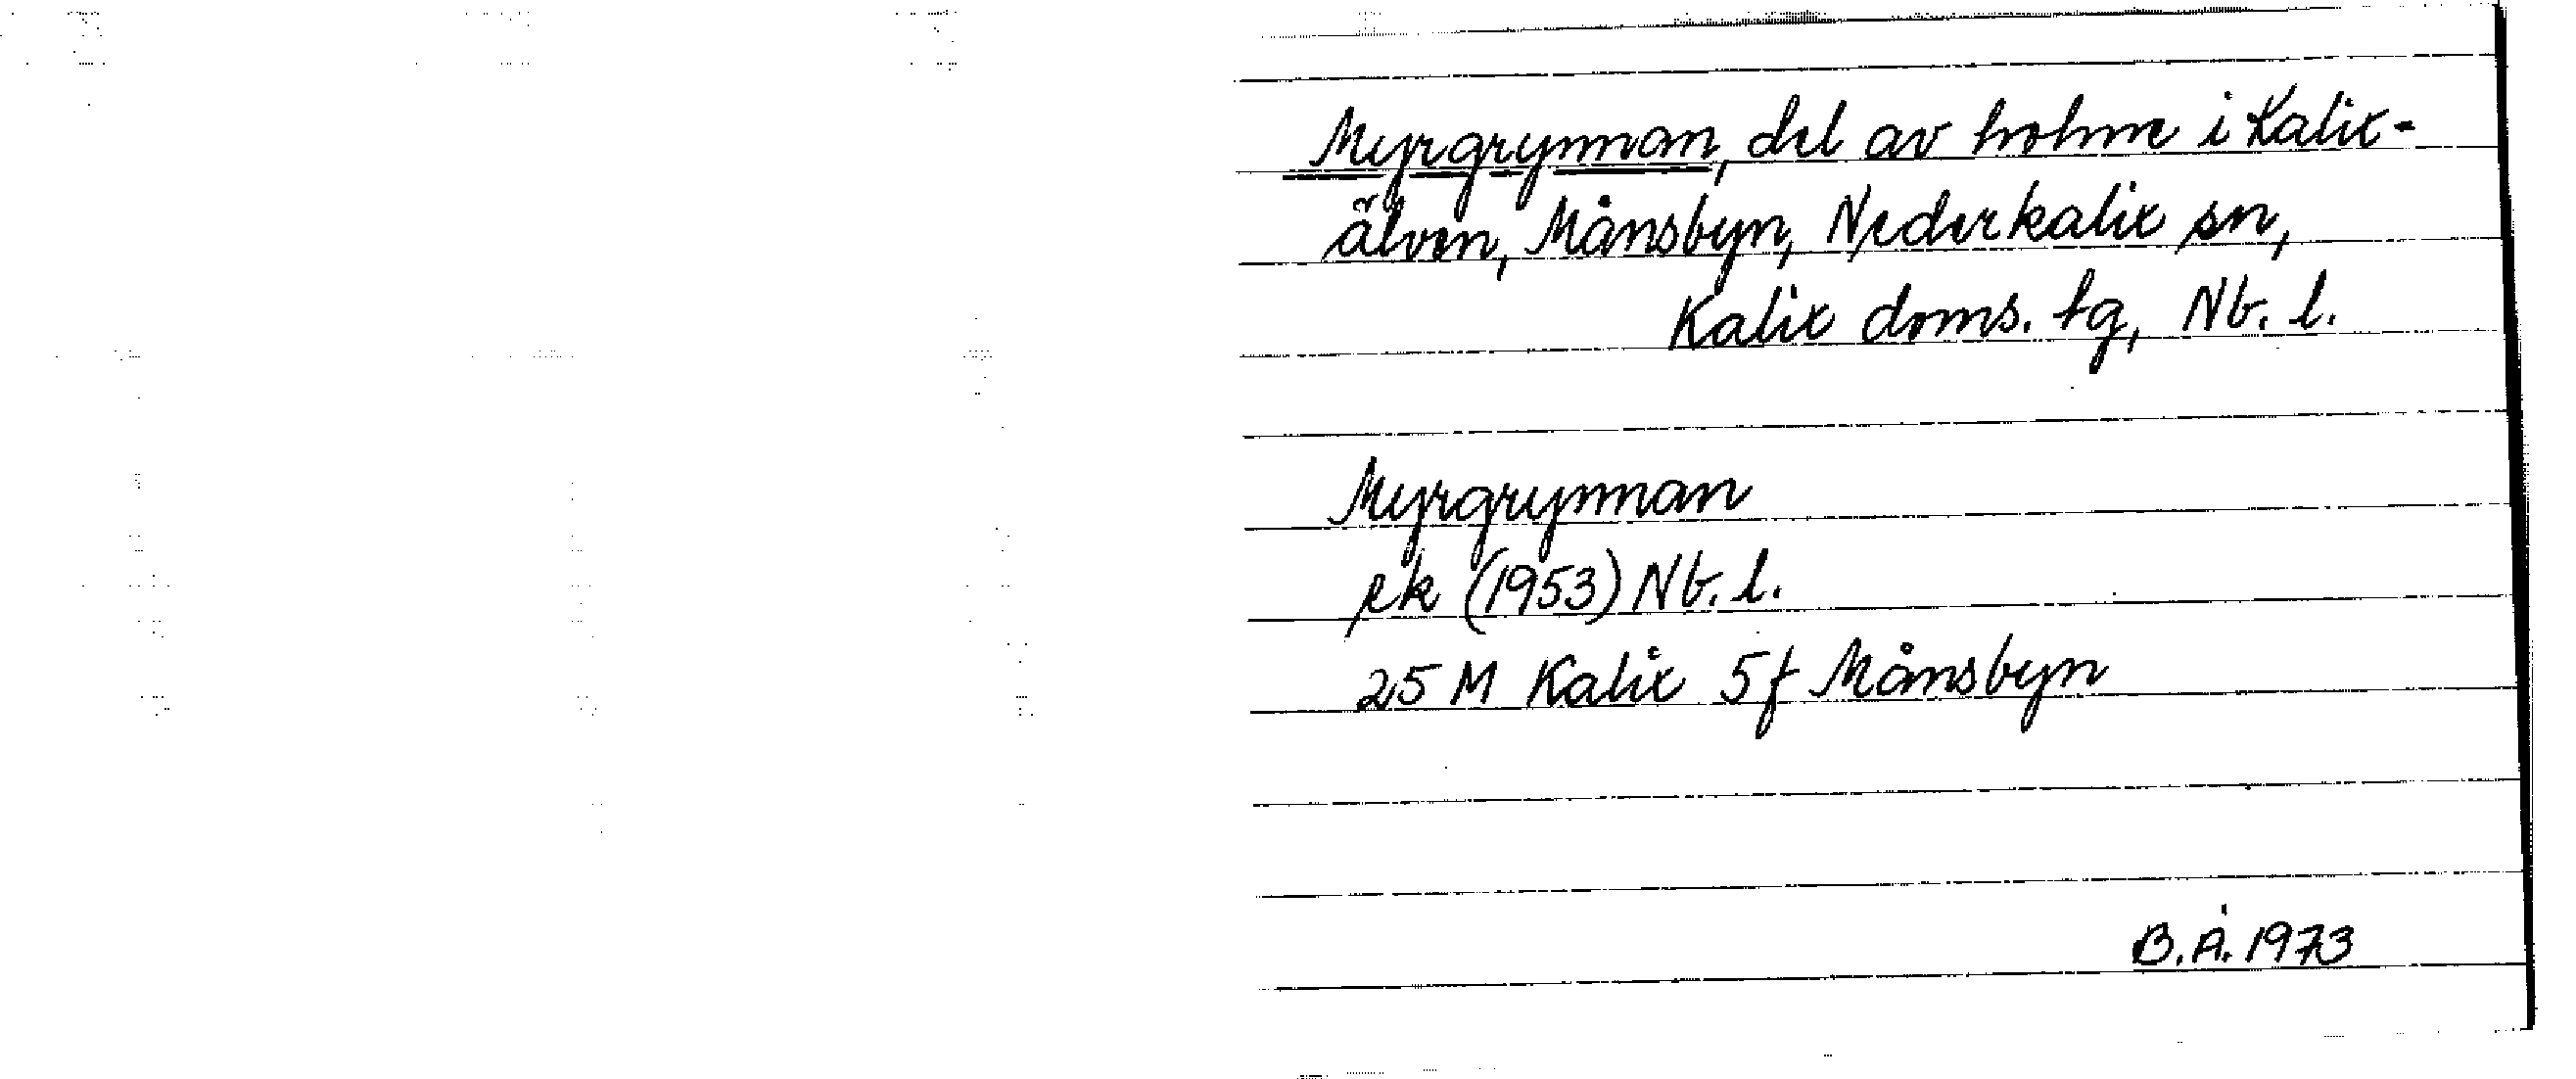 Myrgrynnan, del av holme i Kalix-
älven, Månsbyn, Nederkalix sn,
Kalix doms. tg, Nb. l.
Myrgrynnan
ek (1953) Nb. l.
25 M Kalix 5f Månsbyn
B.Å. 1973